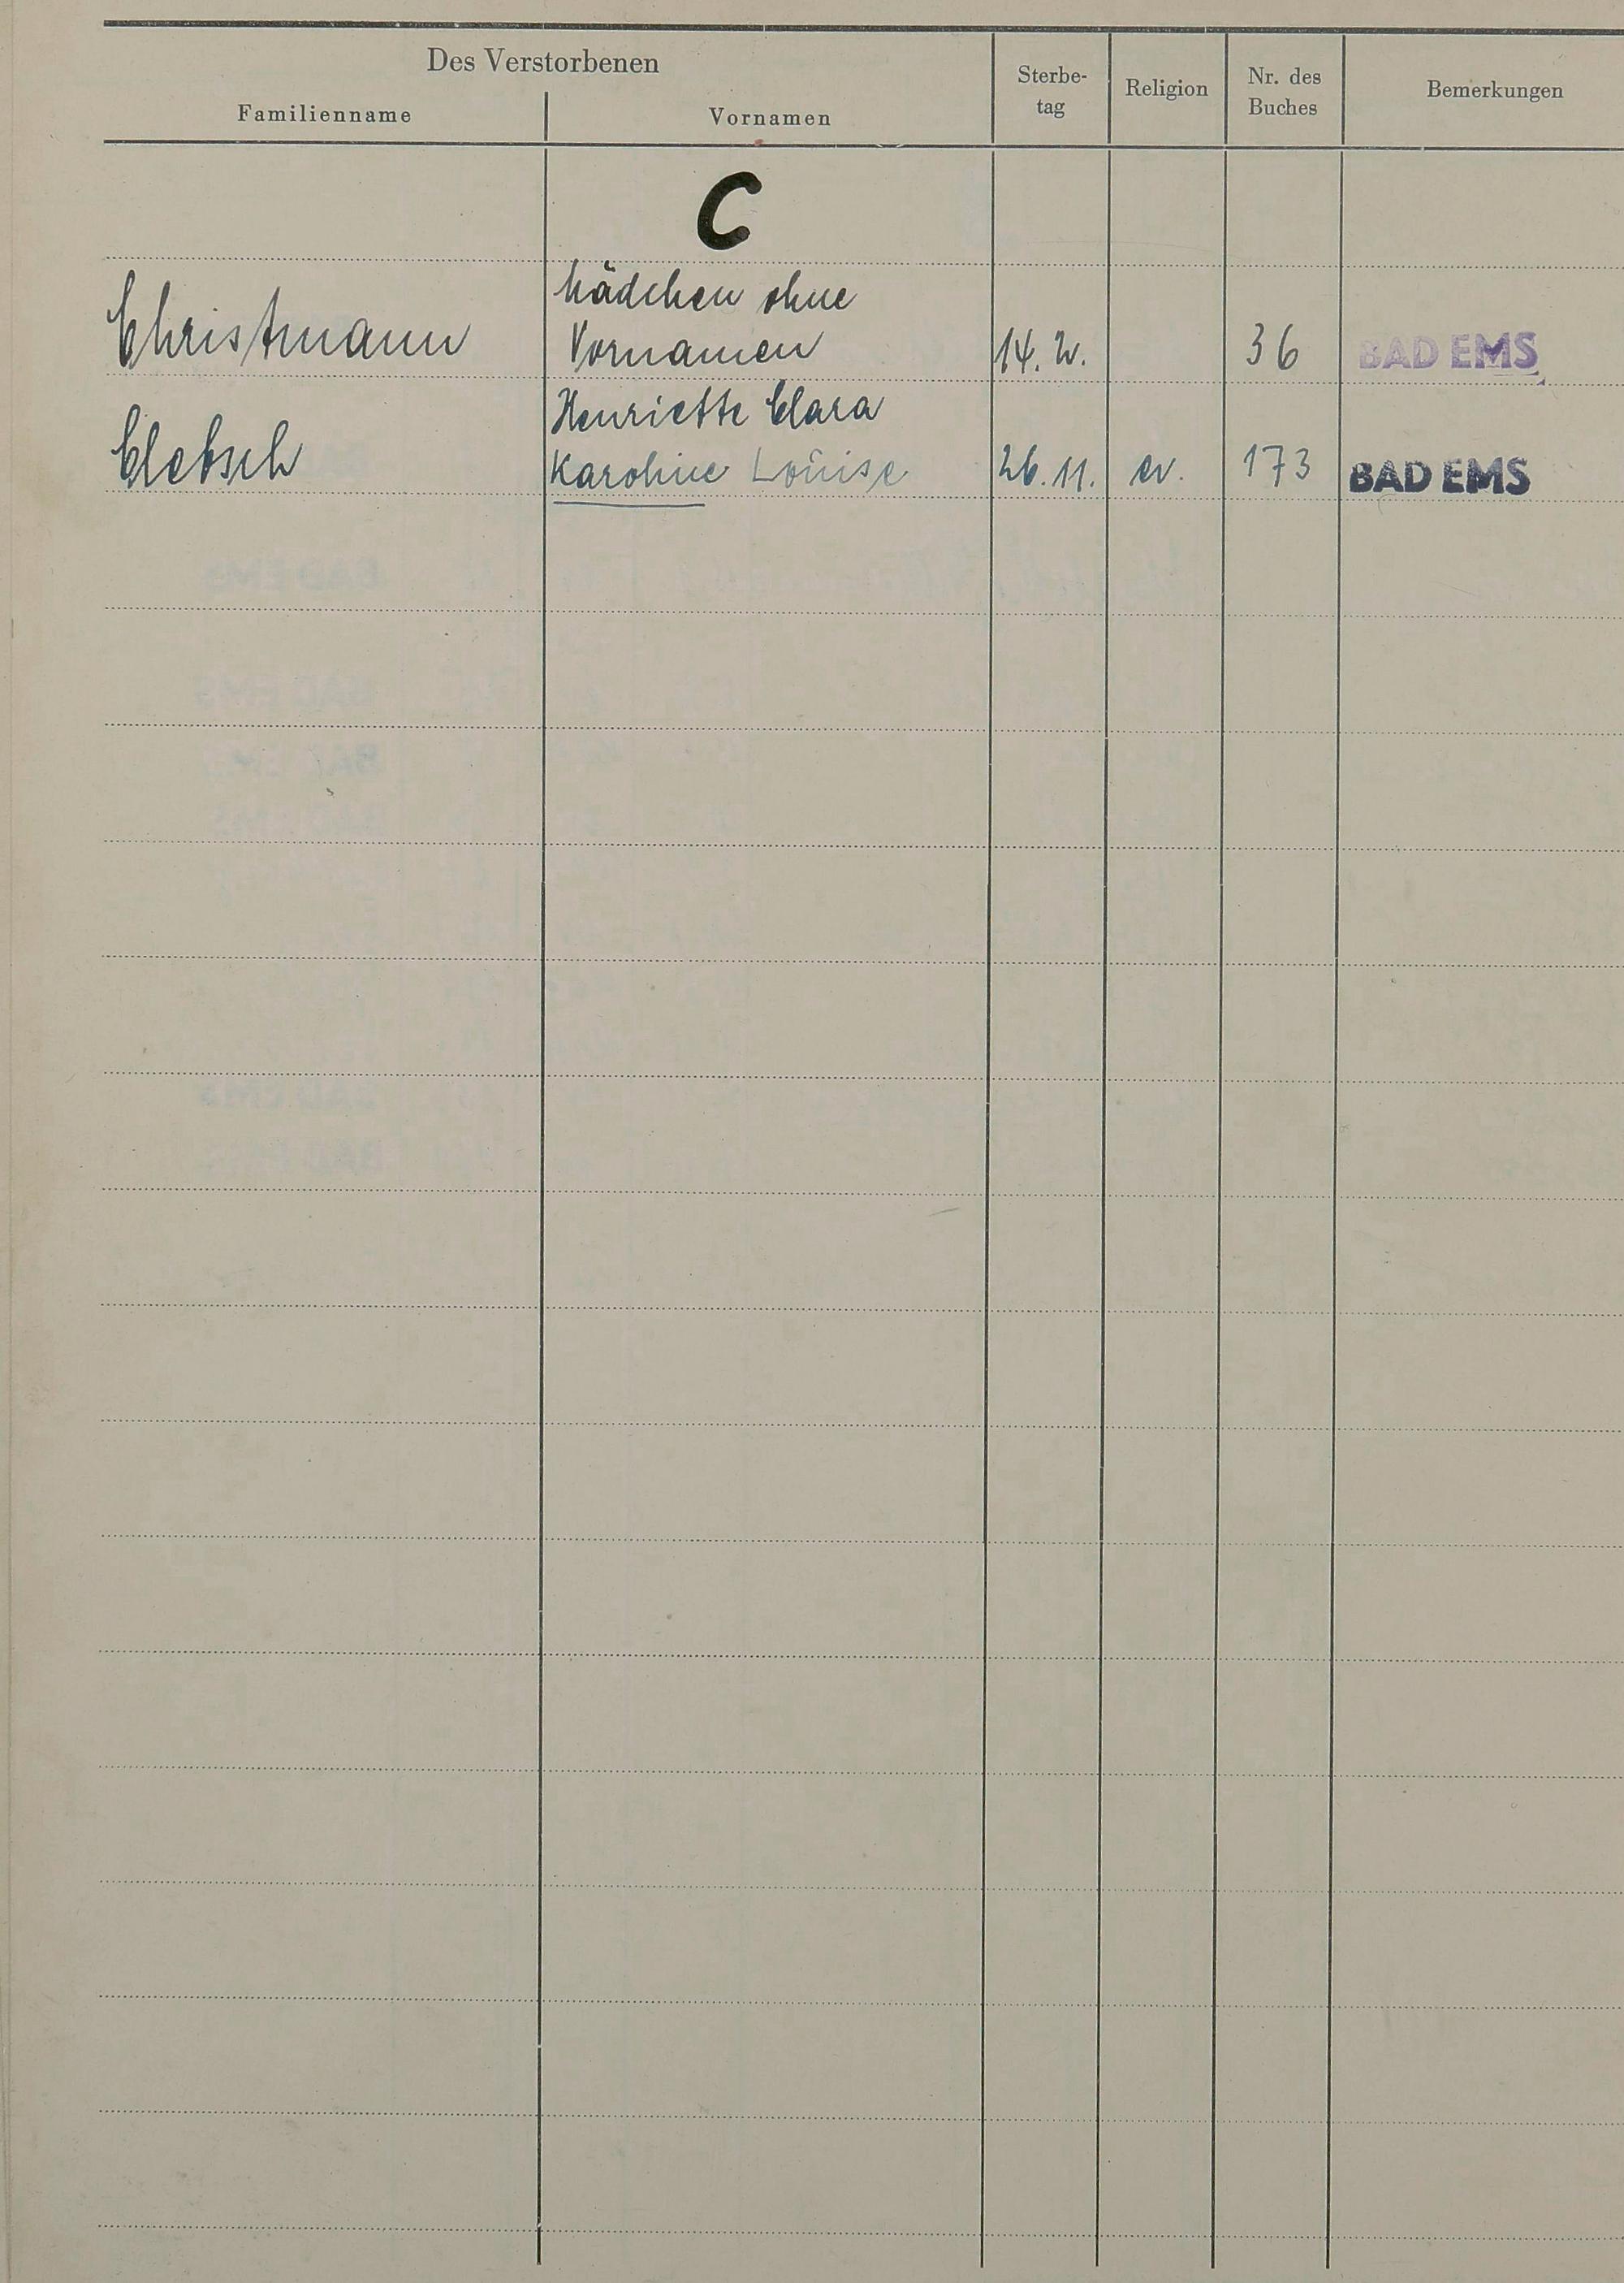 Des Verstorbenen
Familienname Vornamen Sterbe-
tag Religion Nr. des
Buches Bemerkungen
C
Mädchen ohne
Christmann Vornamen 14. 2. 36 BAD EMS
Henriette Clara
Clebsch Karoline Louise 26.11. ev. 173 BAD EMS